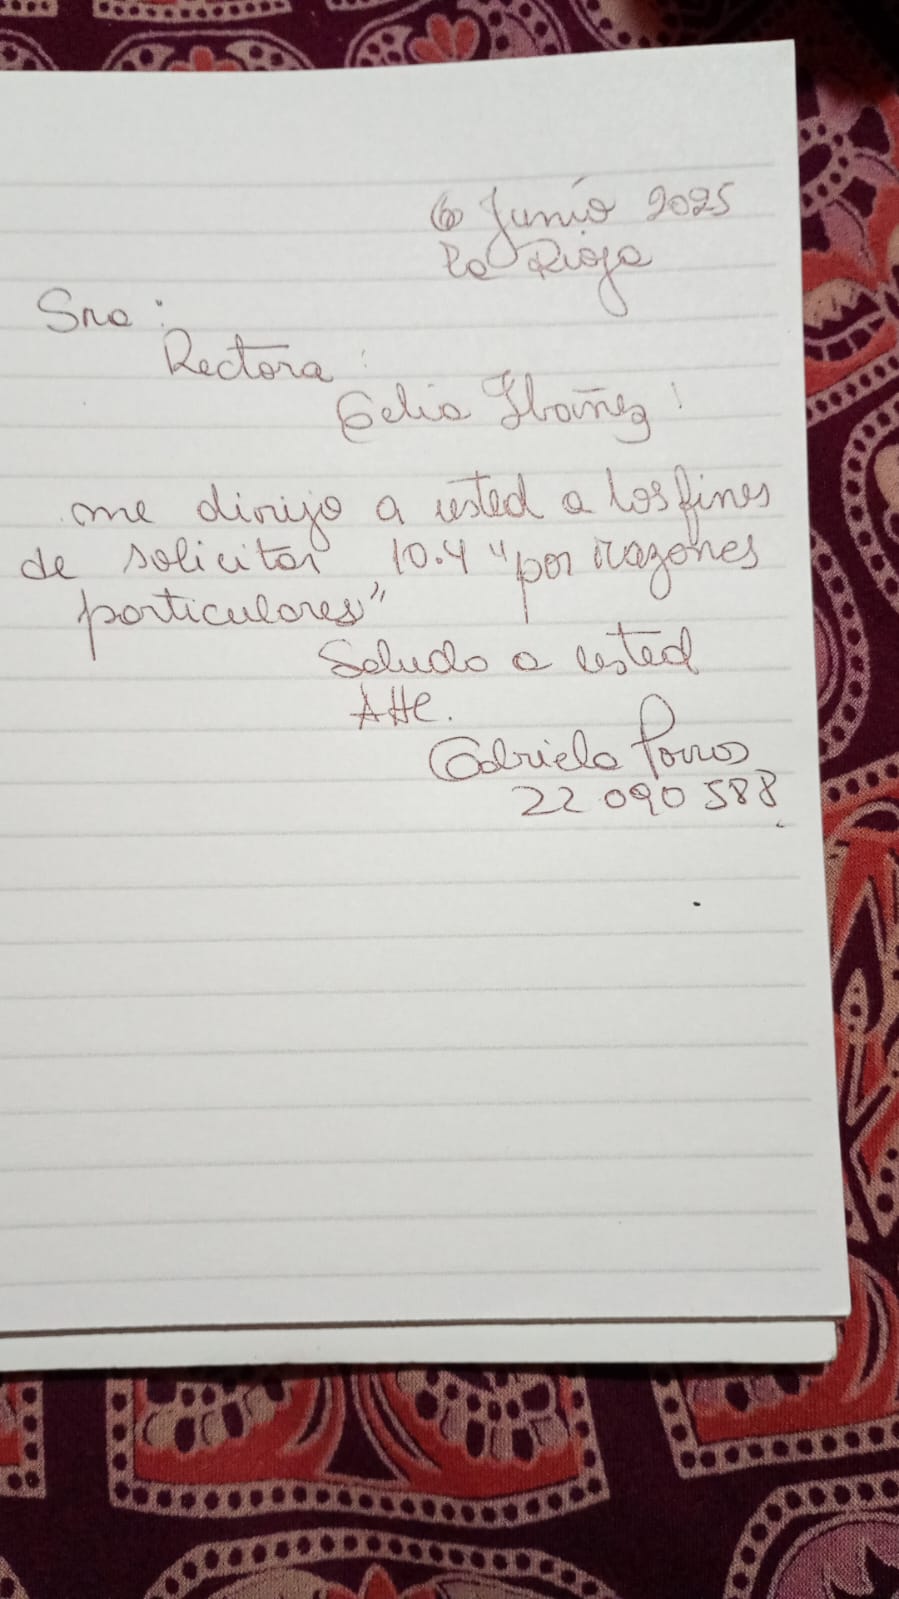 6 Junio 2025
La Rioja
Sra:
Rectora:
Celia Ibañez!
me dirijo a usted a los fines
de solicitar 10.4 "por razones
particulares"
Saludo a usted
Atte.
Gabriela Porras
22 090 588